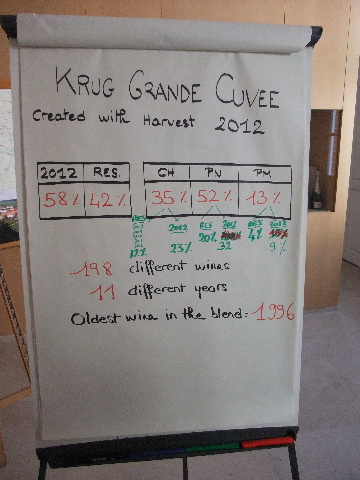 KRUG GRANDE CUVEE
Created with Harvest 2012
2012 RES. CH PN PM
58% 42% 35% 52% 13%
RES 2012 RES 2012 RES 2012
12% 23% 20% 32 4% 9%
198 different wines
11 different years
Oldest wine in the blend: 1996